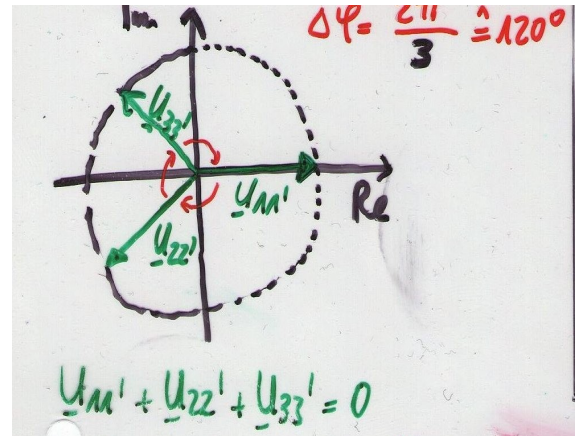 Im
Δφ = 2π/3 ≙ 120°
U33'
U11'
Re
U22'
U11' + U22' + U33' = 0